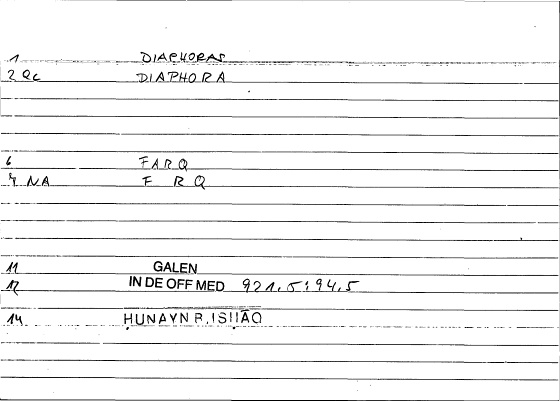 1 DIAPHORAS
2 QC DIAPHORA
6 FARQ
7 NA F RQ
11 GALEN
12 IN DE OFF MED 921.5:94.5
14 ḤUNAYN B. ISḤĀQ